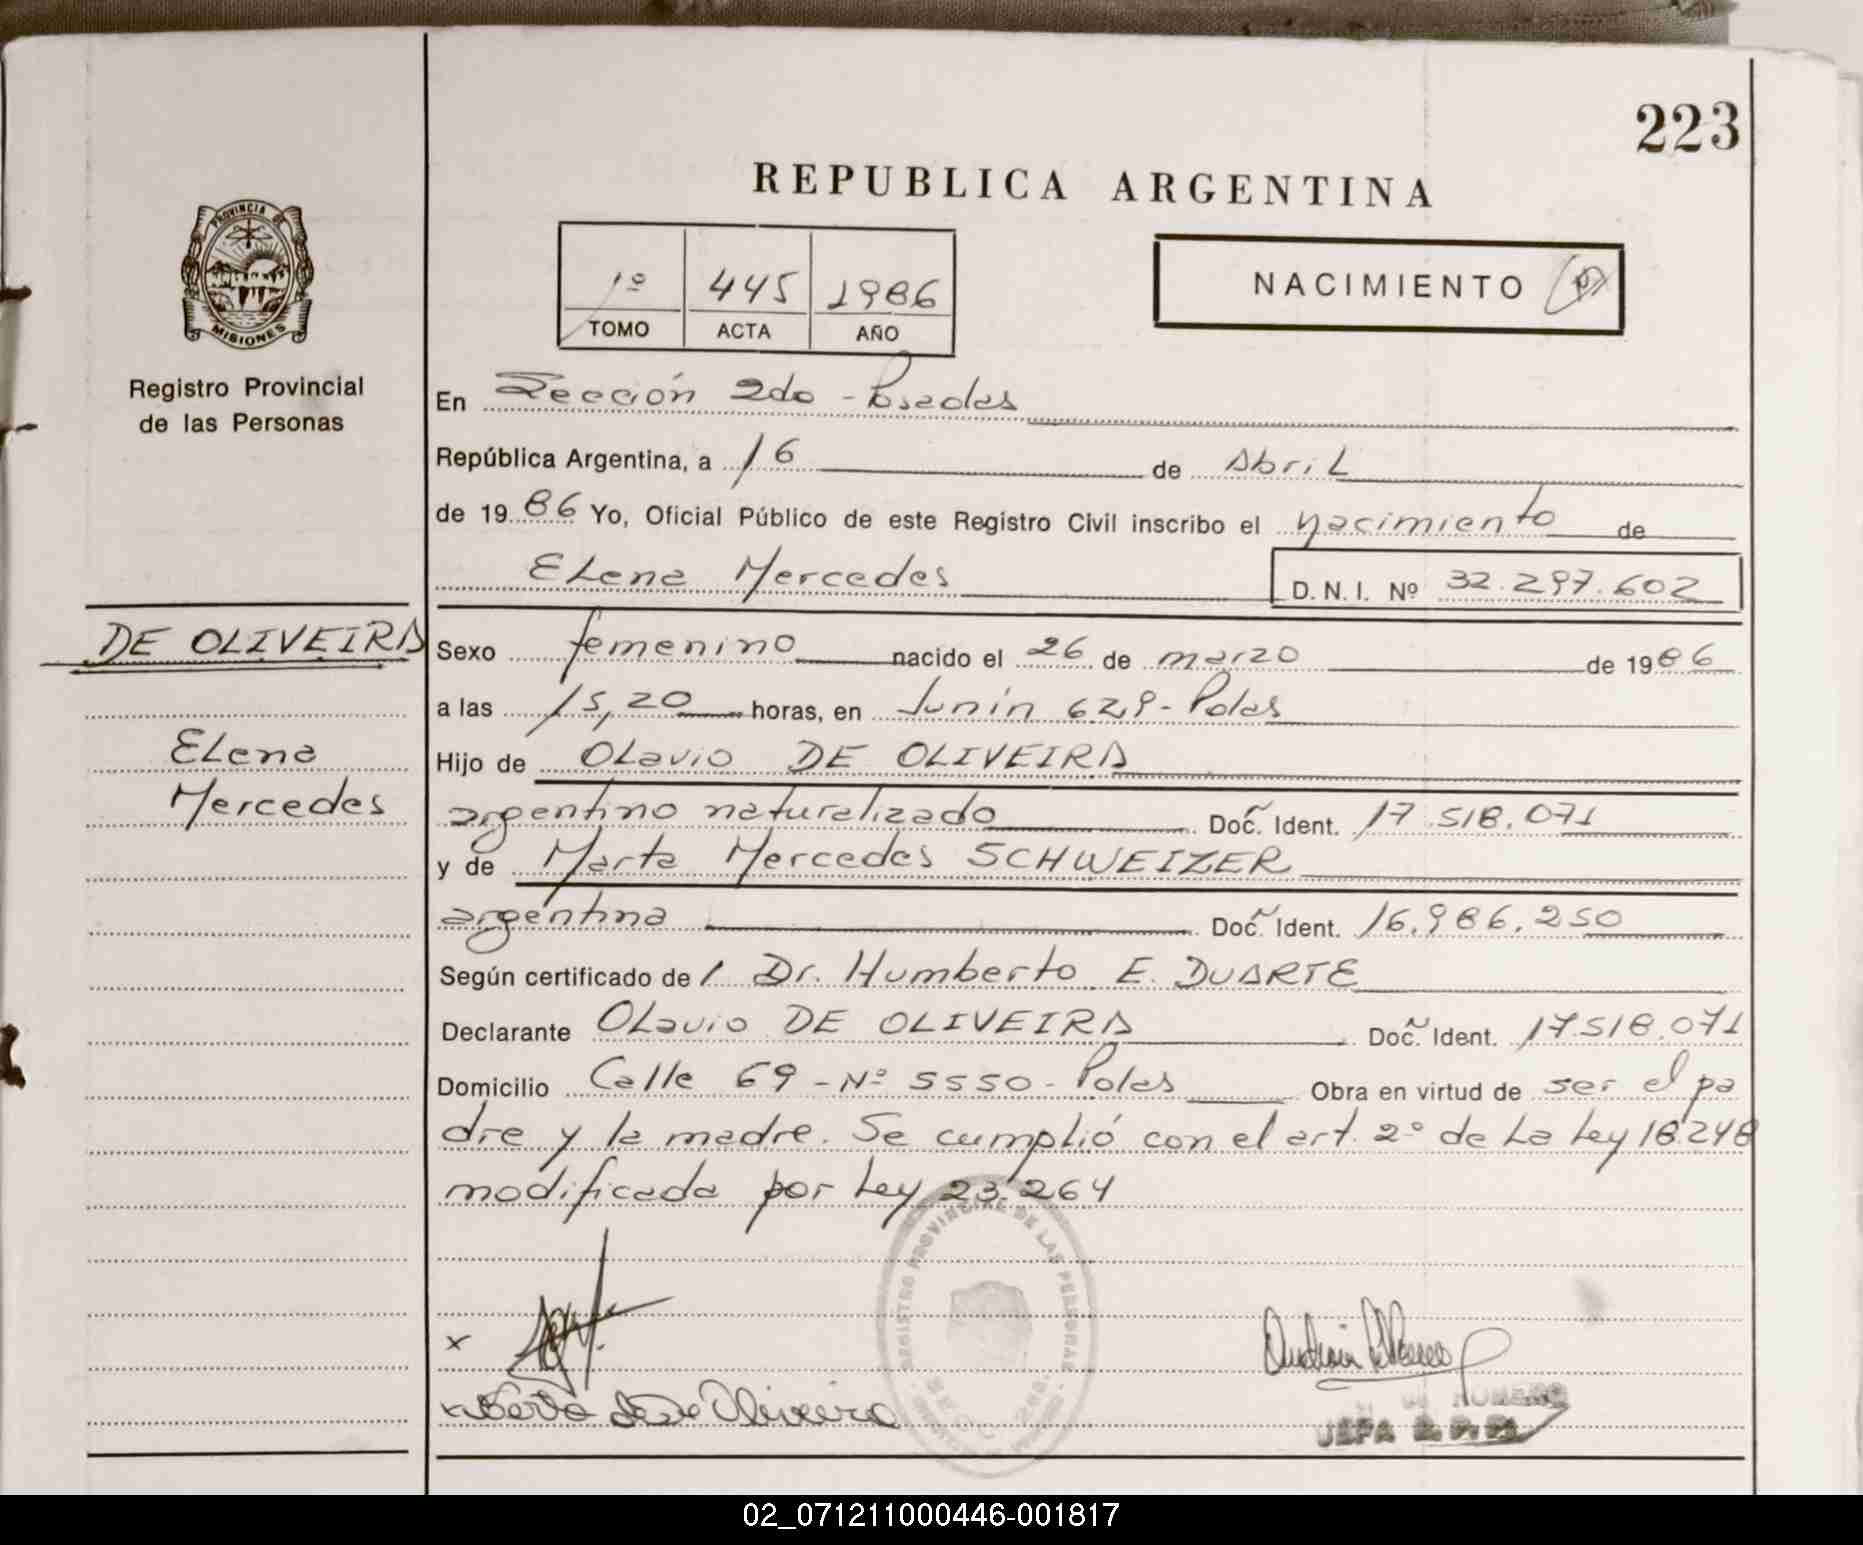 223
REPUBLICA ARGENTINA
PROVINCIA DE
MISIONES
Registro Provincial
de las Personas
1º 445 1986
TOMO ACTA AÑO
NACIMIENTO
En Sección 2do - Posadas
República Argentina, a 16 de Abril
de 1986 Yo, Oficial Público de este Registro Civil inscribo el nacimiento de
Elena Mercedes D. N. I. Nº 32.297.602
DE OLIVEIRA
Elena
Mercedes
Sexo femenino nacido el 26 de marzo de 1986
a las 15,20 horas, en Junín 629 - Pdas
Hijo de Olavio DE OLIVEIRA
argentino naturalizado Doc. Ident. 17.518.071
y de Marta Mercedes SCHWEIZER
argentina Doc. Ident. 16.986.250
Según certificado de / Dr. Humberto E. DUARTE
Declarante Olavio DE OLIVEIRA Doc. Ident. 17.518.071
Domicilio Calle 69 - Nº 5550 - Pdas Obra en virtud de ser el pa
dre y la madre. Se cumplió con el art. 2º de La Ley 18.248
modificada por Ley 23.264
REGISTRO PROVINCIAL DE LAS PERSONAS
x
x de Oliveira
ROMERO
JEFA
02_071211000446-001817